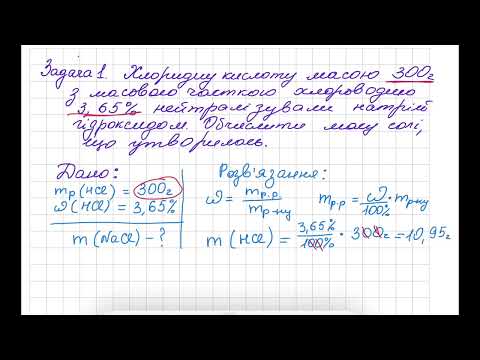 Задача 1. Хлоридну кислоту масою 300г
з масовою часткою хлороводню
3,65% нейтралізували натрій
гідроксидом. Обчислити масу солі,
що утворилась.
Дано:
mр(HCl) = 300г
ω(HCl) = 3,65%
m(NaCl) - ?
Розв'язання:
ω = mр.р. / mр-ну
mр.р = ω / 100% · mр-ну
m(HCl) = 3,65% / 100% · 300г = 10,95г